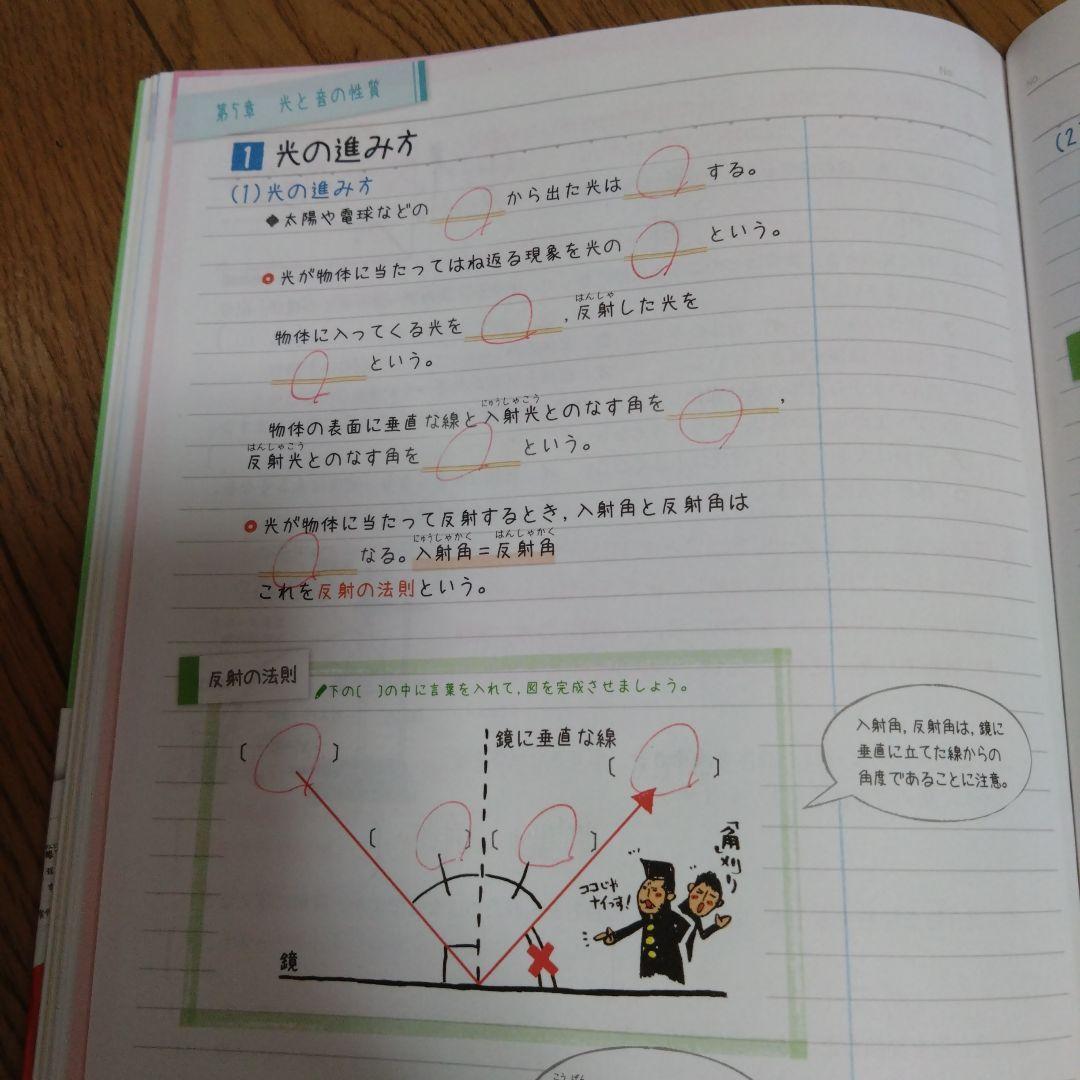 第5章 光と音の性質
No.
No.
1 光の進み方
(1)光の進み方
◆太陽や電球などの から出た光は する。
光が物体に当たってはね返る現象を光の という。
物体に入ってくる光を , 反射した光を
はんしゃ
という。
物体の表面に垂直な線と入射光とのなす角を ,
にゅうしゃこう
反射光とのなす角を という。
はんしゃこう
光が物体に当たって反射するとき, 入射角と反射角は
なる。入射角=反射角
にゅうしゃかく はんしゃかく
これを反射の法則という。
反射の法則
下の〔 〕の中に言葉を入れて, 図を完成させましょう。
鏡に垂直な線
〔 〕 〔 〕
〔 〕 〔 〕
入射角, 反射角は, 鏡に
垂直に立てた線からの
角度であることに注意。
「角」刈り
ココじゃ
ナイっす!
鏡
(2
こうげん